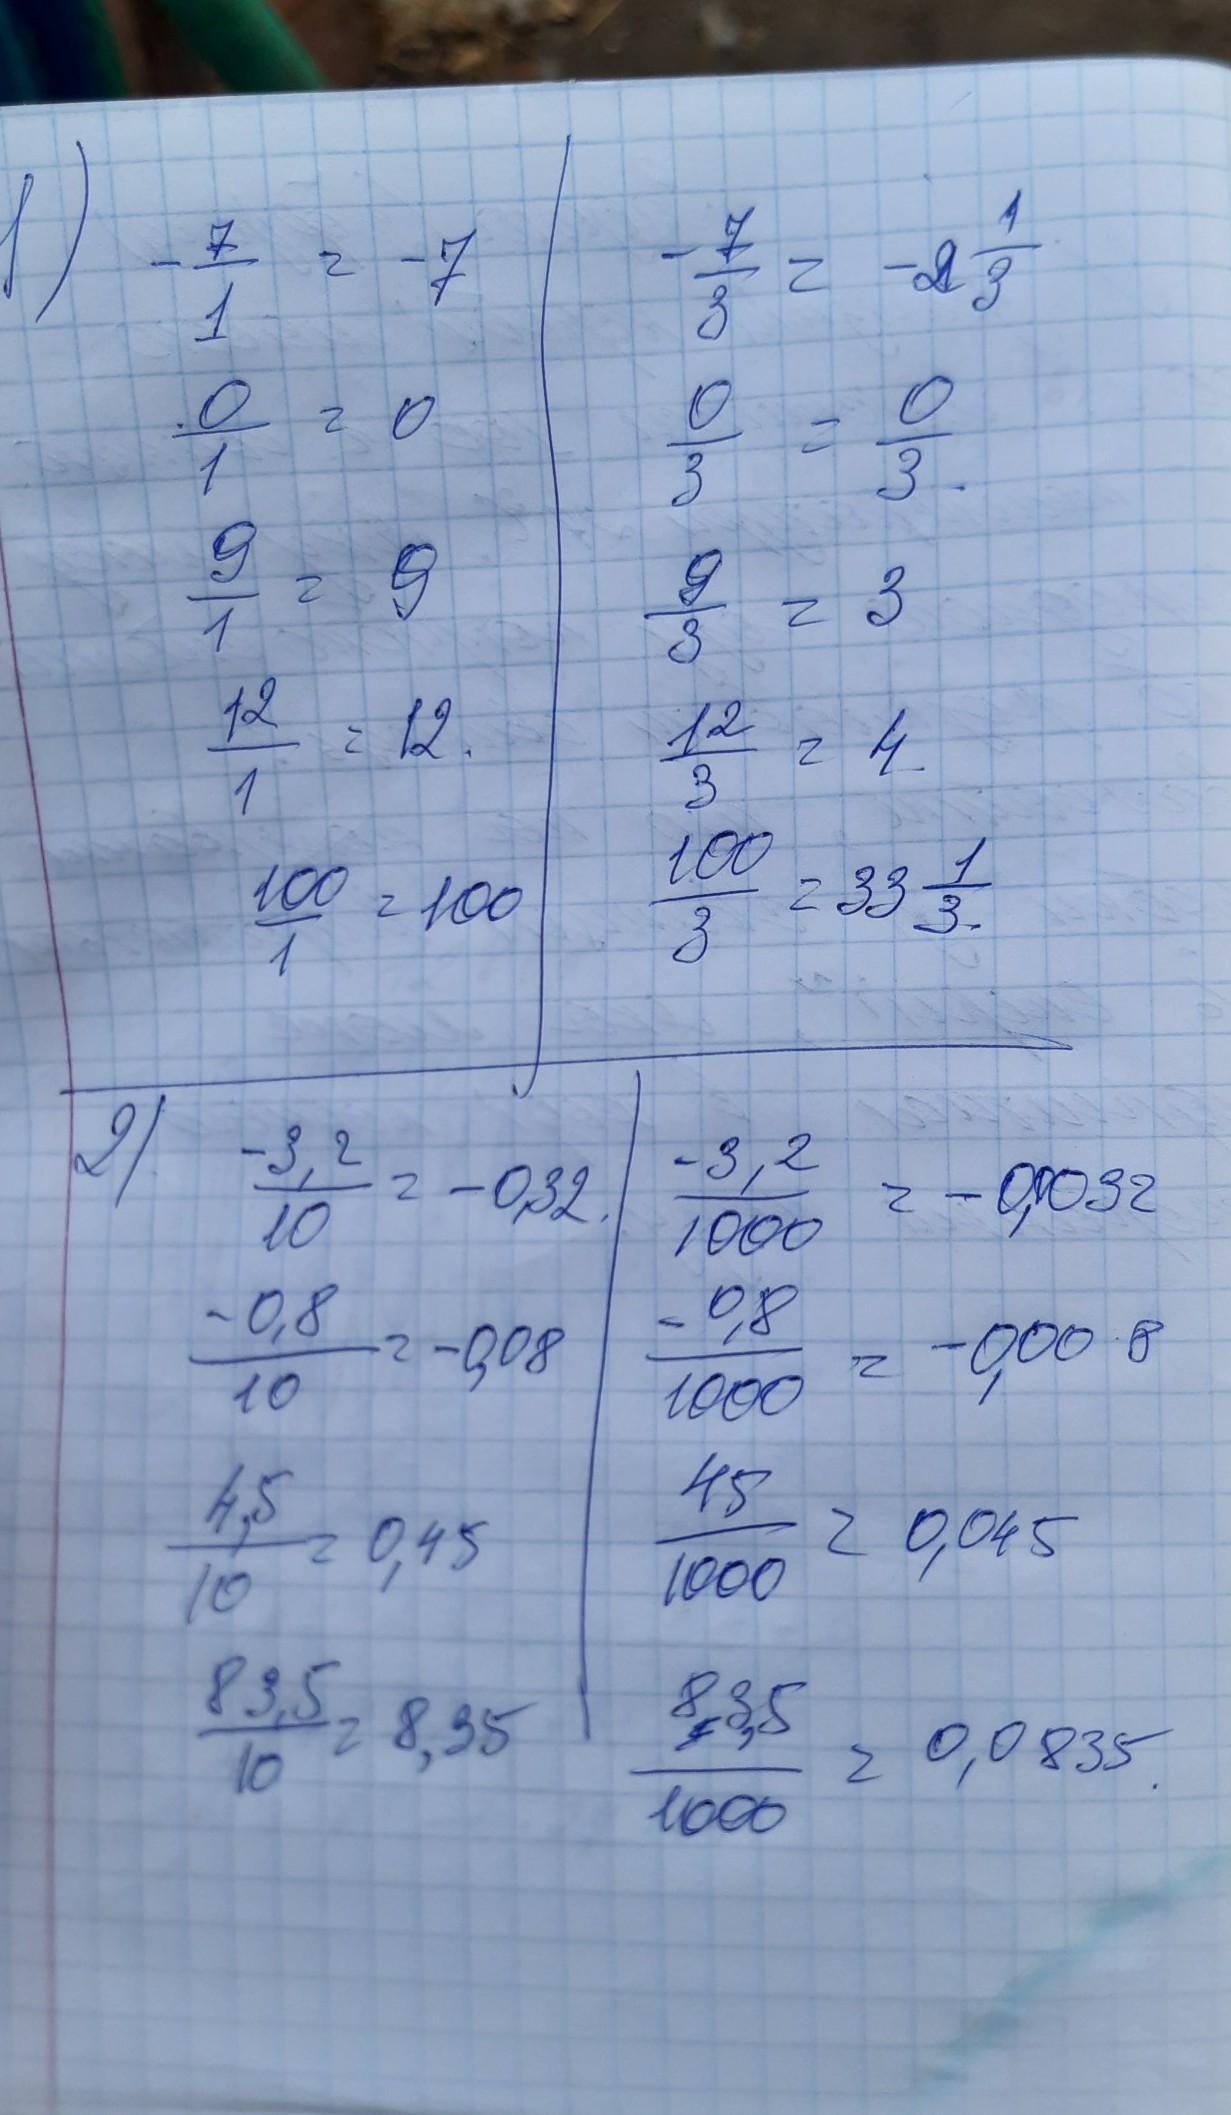 1) -7/1 = -7
0/1 = 0
9/1 = 9
12/1 = 12.
100/1 = 100
-7/3 = -2 1/3
0/3 = 0/3.
9/3 = 3
12/3 = 4.
100/3 = 33 1/3.
2) -3,2/10 = -0,32.
-0,8/10 = -0,08
4,5/10 = 0,45
83,5/10 = 8,35
-3,2/1000 = -0,0032
-0,8/1000 = -0,00 8
45/1000 = 0,045
83,5/1000 = 0,0835.